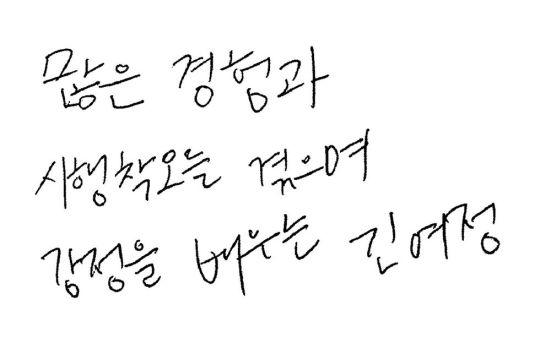 많은 경험과
시행착오늘 겪으며
감정을 배우는 긴 여정